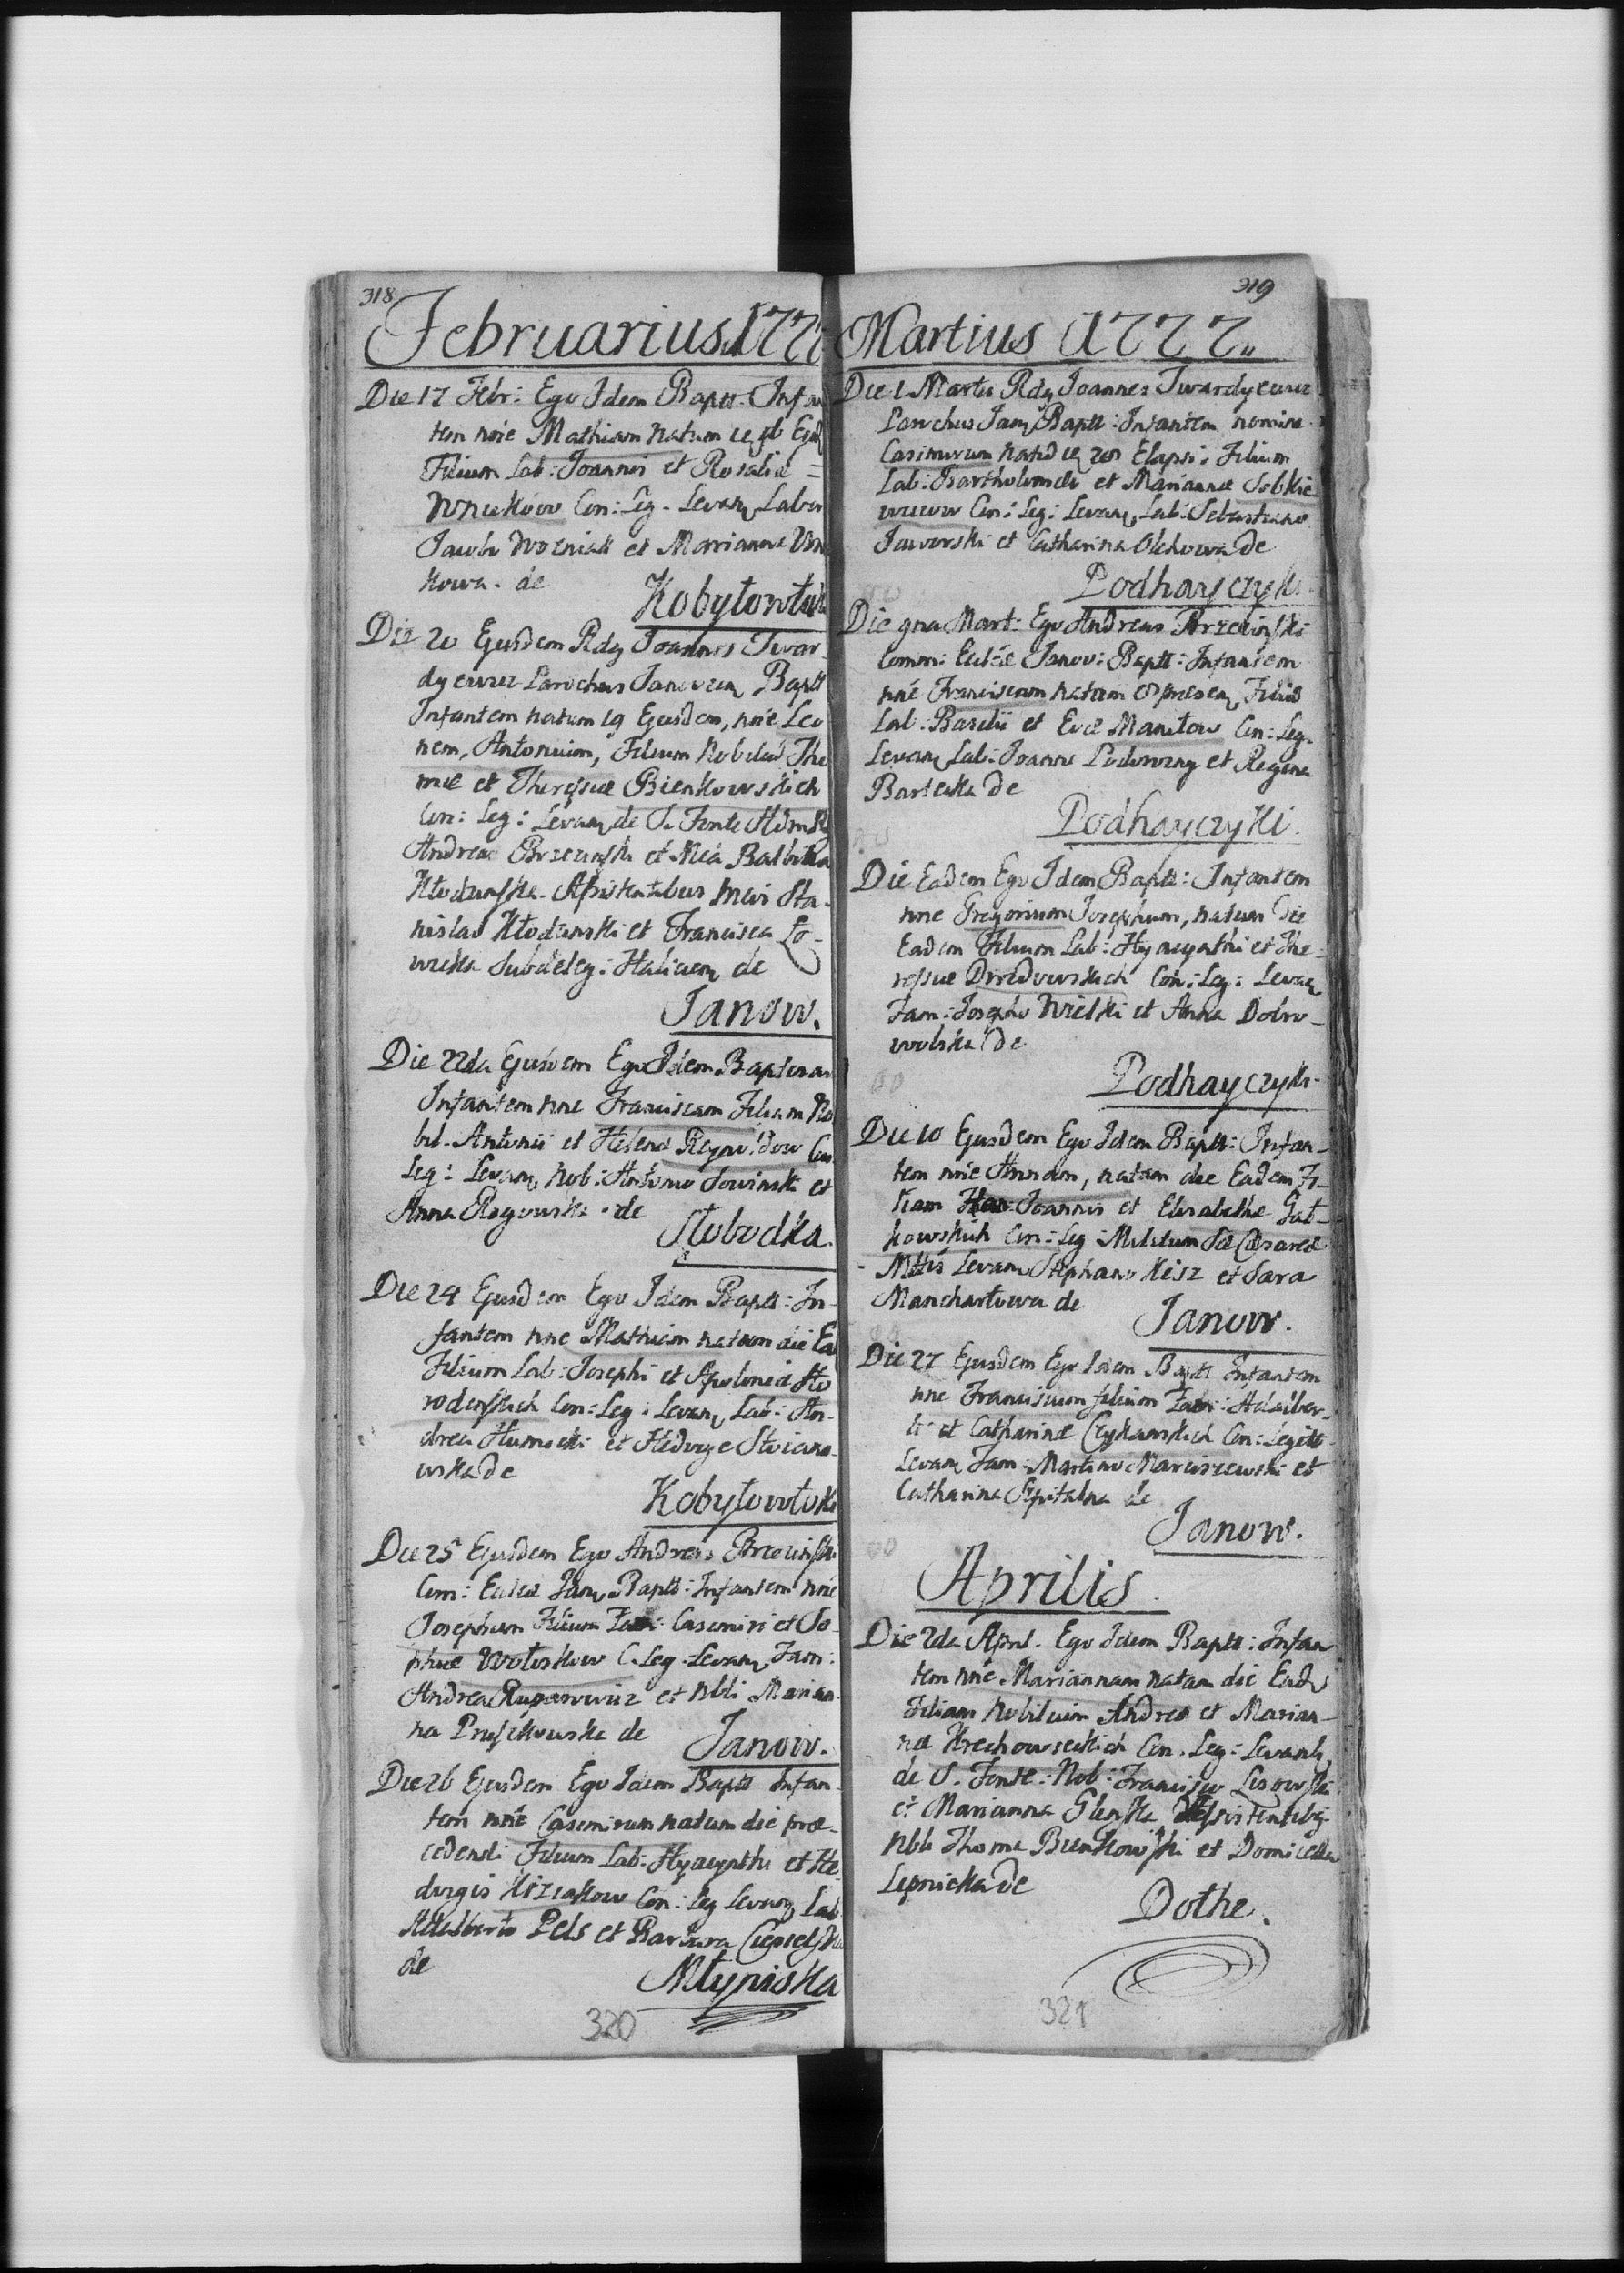 318
Februarius 1777
Die 17 Febr: Ego Idem Baptt. Infan
tem nõie Mathiam natum
Filium Lab: Joannis et Rosaliæ =
Wnukow Con: Leg. Levan Labor
Jacobo Wozniak et Marianna
kowa. de
Kobyłowłoki
Die 20 Ejusdem Rdq Joannes Twar-
dyewicz Parochus Janovien Baptt
Infantem natum 19 Ejusdem, nõie Leo
nem, Antonium, Filium Nobilium Tho
mæ et Theressiæ Bienkowskich
Con: Leg: Levan de S. Fonte
Andrea Brzezinski et Balbina
Kłodzinska. Assistentibus Sta-
nislao Kłodzinski et Francisca Lo-
wicka Subdeleg: Halicien de
Janow.
Die 22da Ejusdem Ego Idem Baptisavi
Infantem nne Franciscam Filiam No
bil. Antonii et Helenæ Reynoldow Con
Leg: Levan Nob: Antonio Sowinski et
Anna Rogowska. de
Słobodka.
Die 24 Ejusdem Ego Idem Baptt: In-
fantem nne Mathiam natum die Ea
Filium Lab: Josephi et Apoloniæ Ho
rodenskich Con: Leg: Levan Lab: An-
drea et Hedvige
wska de
Kobyłowłoki
Die 25 Ejusdem Ego Andreas Brzezinski
Com: Eccliæ Jan Baptt: Infantem nõie
Josephum Filium Fam: Casimiri et So-
phiæ Wołoskow C. Leg. Levan Fam:
Andrea Ruparowicz et Nbli Marian-
na Pruszkowska de
Janow.
Die 26 Ejusdem Ego Idem Baptt Infan-
tem nõie Casimirum natum die præ-
cedenti Filium Lab: Hyacynthi et He
dvigis Con: Leg Levan Lab
Adalberto Pels et Barbara
de
Młyniska
320
319
Martius 1777
Die 1 Martis Rdq Joannes Twardyewicz
Parochus Jan Baptt: Infantem nomine
Casimirum Elapsi Filium
Lab: Bartholomæi et Mariannæ Sobkie
wiczow Con: Leg: Levan Lab: Sebastiano
Jaworski et Catharina Olchowa de
Podhayczyki
Die 9na Mart: Ego Andreas Brzezinski
Comm: Eccliæ Janov: Baptt: Infantem
nñe Franciscum natum 8 presen Filiũ
Lab: Basilii et Evæ Maniłow Con: Leg.
Levan Lab: Joanne et Regina
Bartecka de
Podhayczyki.
Die Eadem Ego Idem Baptt: Infantem
nne Gregorium Josephum, natum die
Eadem Filium Lab: Hyacynthi et The-
ressiæ Drozdowskich Con: Leg: Levan
Fam: Josepho Wielki et Anna Dobro-
wolska de
Podhayczyki.
Die 10 Ejusdem Ego Idem Baptt: Infan-
tem nñe Annam, natam die Eadem Fi-
liam Joannis et Elisabethæ Gat-
kowskich Con: Leg: Militum Sæ Cæsareæ
Mttis Levan Stephano Kisz et Sara
Manchartowa de
Janow.
Die 27 Ejusdem Ego Idem Baptt Infantem
nne Franciscum filium Fam: Adalber-
ti et Catharinæ Czykanskich Con: Legitt
Levan Fam: Martino Marciszewski et
Catharina Szpitalna de
Janow.
Aprilis
Die 2da April. Ego Idem Baptt: Infan
tem nñe Mariannam natam die Eadē
Filiam Nobilium Andreæ et Marian-
næ Krechowieckich Con. Leg: Levan
de S. Fonte: Nob: Francisco Lisowski
et Marianna Glinska Assistentibq
Nbli Thoma Bienkowski et Domicella
Lipnicka de
Dothe.
321